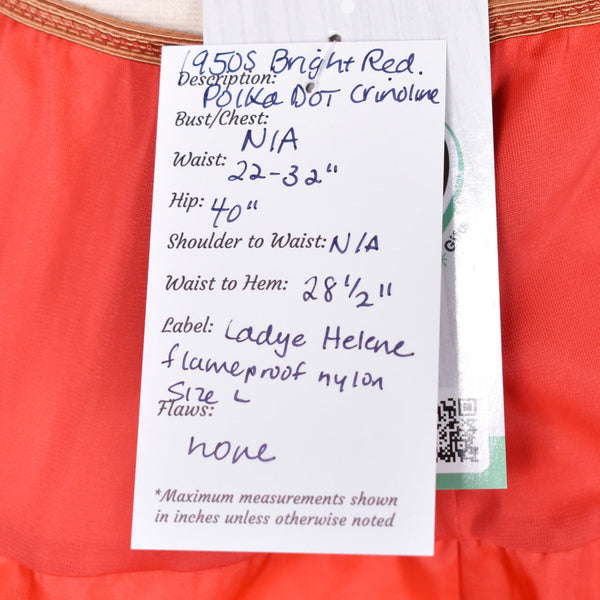 1950s Bright Red.
Description:
Polka Dot Crinoline
Bust/Chest:
N/A
Waist: 22-32"
Hip: 40"
Shoulder to Waist: N/A
Waist to Hem: 28 1/2"
Label: Ladye Helene
flameproof nylon
Size L
Flaws:
none
*Maximum measurements shown
in inches unless otherwise noted